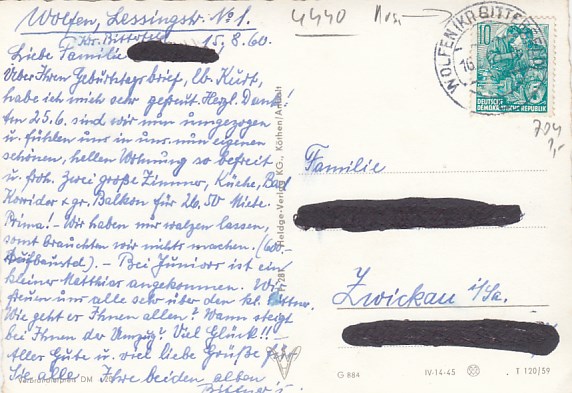 Wolfen, Lessingstr. No 1.
Kr. Bitterfeld 15.8.60.
Liebe Familie
Über Ihren Geburtstagsbrief, lb. Kurt,
habe ich mich sehr gefreut. Herzl. Dank!
Am 25.6. sind wir nun umgezogen
u. fühlen uns in uns. nun eigenen
schönen, hellen Wohnung so befreit
u. froh. Zwei große Zimmer, Küche, Bad
Korridor + gr. Balkon für 26,50 Miete.
Prima! - Wir haben nur walzen lassen,
sonst brauchten wir nichts machen.
- Bei Juniors ist ein
kleiner Matthias angekommen. Wir
freuen uns alle sehr über den kl. Bittner.
Wie geht es Ihnen allen? Wann steigt
bei Ihnen der Umzug? Viel Glück!!
Aller Gute u. viel liebe Grüße für
Sie alle Ihre beiden alten
Bittner's.
Verbraucherpreis DM
Heldge-Verlag KG., Köthen/Anhalt
4440
WOLFEN (KR BITTERFELD)
16
10
DEUTSCHE
DEMOKRATISCHE REPUBLIK
704
1,-
Familie
Zwickau i/Sa.
G 884
IV-14-45
T 120/59